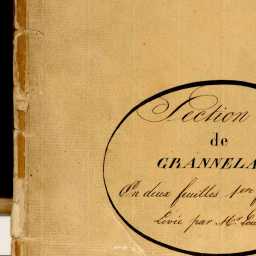 Section
de
GRANNELA
En deux feuilles 1ere f
Levée par Mr. Lou